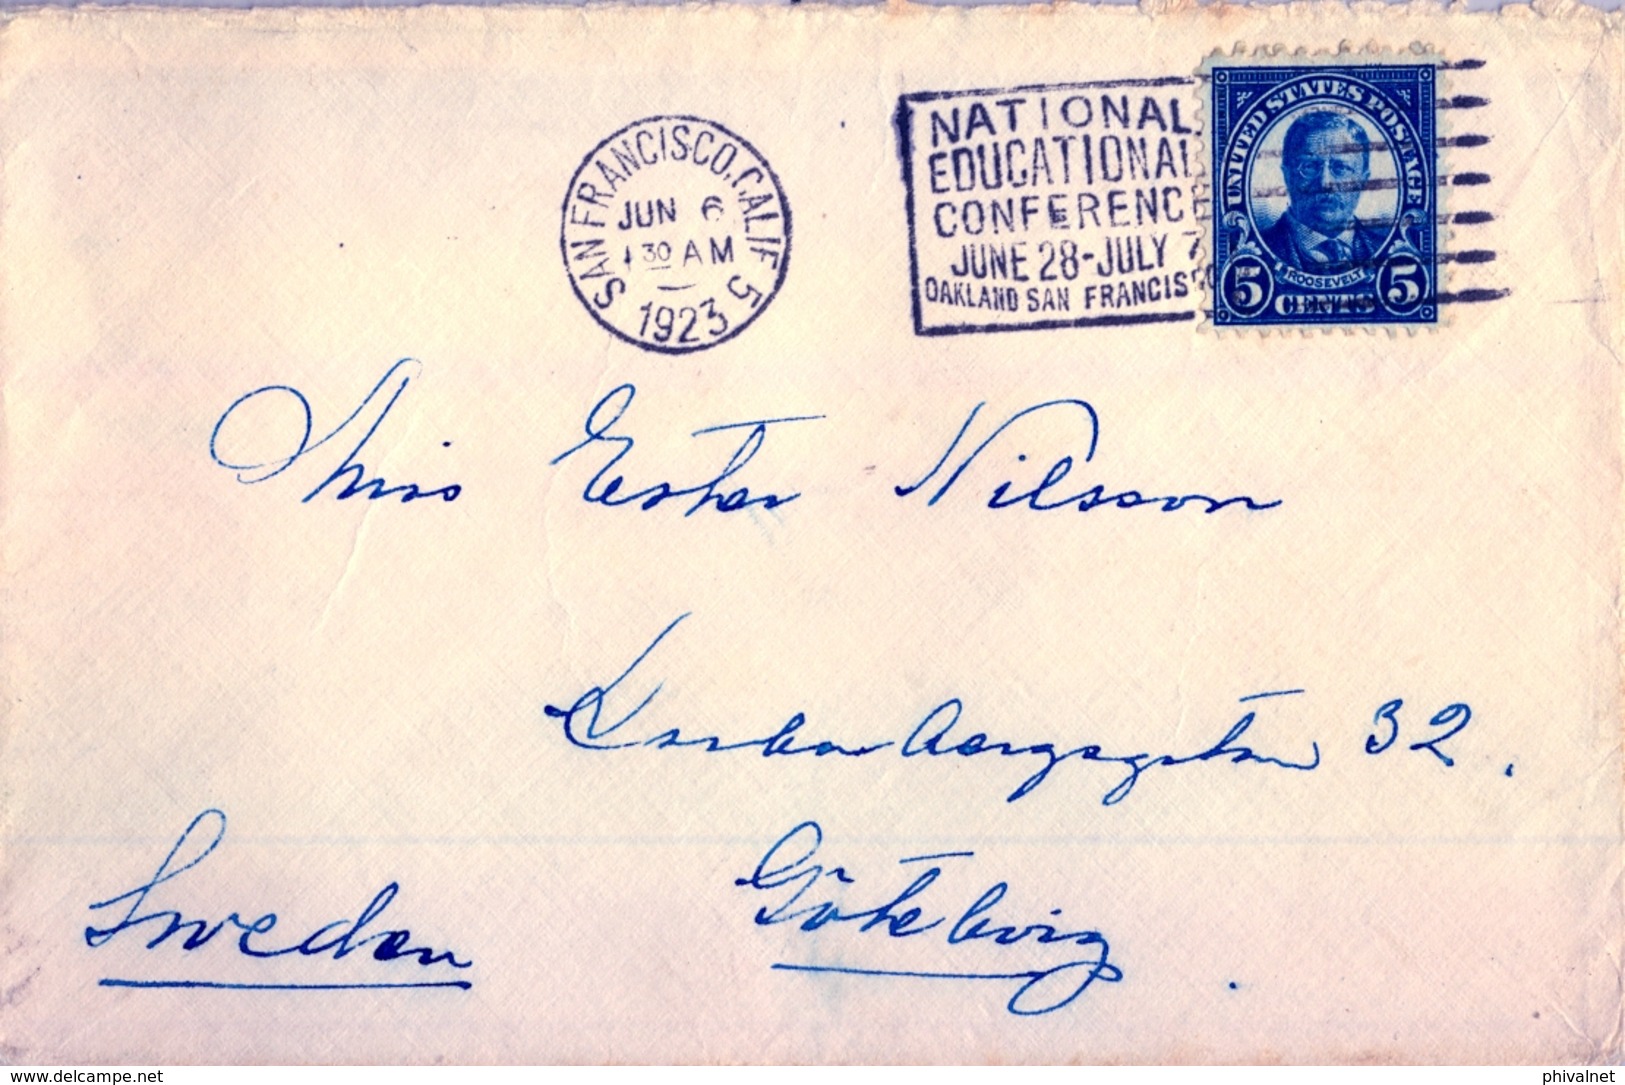 SAN FRANCISCO, CALIF 5
JUN 6
30 AM
1923
NATIONAL
EDUCATIONAL
CONFERENC
JUNE 28-JULY 7
OAKLAND SAN FRANCISCO
UNITED STATES POSTAGE
ROOSEVELT
5 CENTS 5
Miss Ester Nilsson
32.
Göteborg.
Sweden
www.delcampe.net
phivalnet